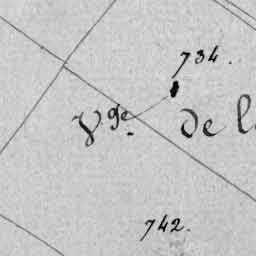 734.
Vge. de l
742.